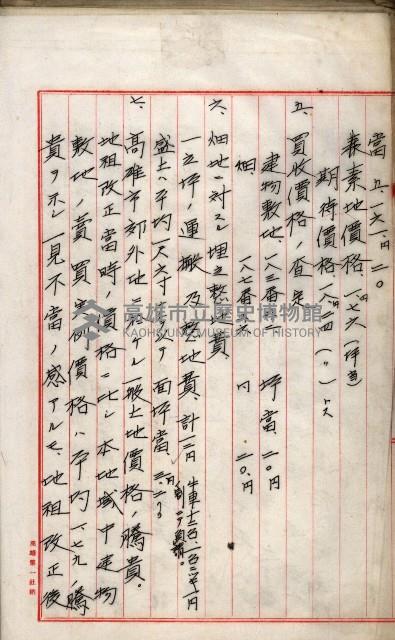 當 五、一六一、円二〇
素地價格 一、七六 (坪當)
期待價格 一、二四 (〃) トス
五、買收價格ノ査定
建物敷地、一八三番ニ 坪當、二〇円
畑 一八七番 円 二〇、円
六、畑地ニ対スル埋立整地費
一立坪ノ運搬及整地費、計 一三円
盛土ハ平均一尺六寸 面坪當、三、二
七、高雄市郊外地ニ於ケル一般土地價格ノ騰貴。
地租改正當時ノ價格ニ比シ本地域中建物
敷地ノ賣買實例價格ハ平均一、七九ノ騰
貴ヲ示シ一見不當ノ感アルモ、地租改正後
高雄市立歷史博物館
KAOHSIUNG MUSEUM OF HISTORY